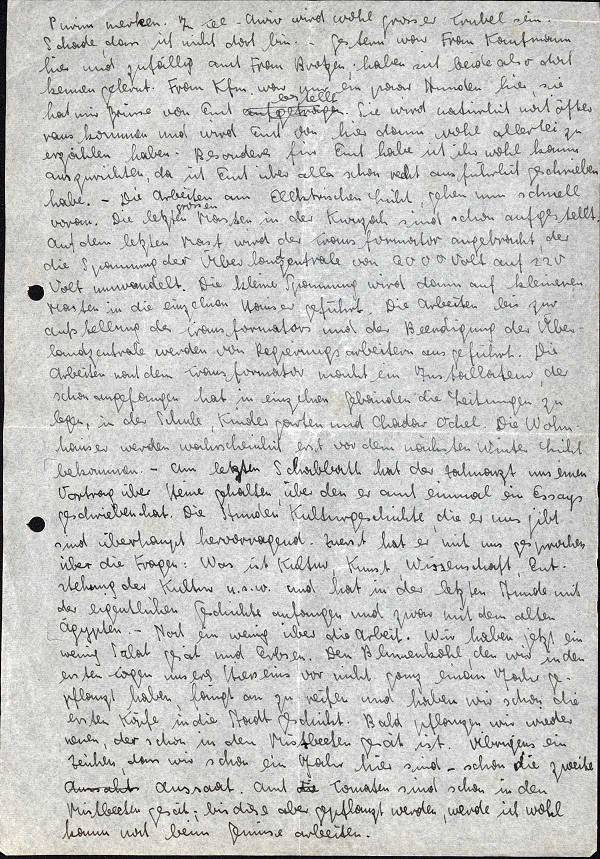 Purim merken. In Tel-Aviv wird wohl grosser Trubel sein.
Schade dass ich nicht dort bin. – Gestern war Frau Kaufmann
hier und zufällig auch Frau haben sich beide also dort
kennen gelernt. Frau Kfm. war nur ein paar Stunden hier, sie
hat mir Grüsse von Euch bestellt. Sie wird natürlich noch öfter
raus kommen und wird Euch von hier dann wohl allerlei zu
erzählen haben. Besonderes für Euch habe ich ihr wohl kaum
auszurichten, da ich Euch über alles schon recht ausführlich geschrieben
habe. – Die Arbeiten am Elektrischen Licht, gehen nun schnell
voran. Die letzten grossen Masten in der Kwuzah sind schon aufgestellt.
Auf dem letzten Mast wird der Transformator angebracht, der
die Spannung der Überlandzentrale von 2000 Volt auf 220
Volt umwandelt. Die kleine Spannung wird dann auf kleineren
Masten in die einzelnen Häuser geführt. Die Arbeiten bis zur
aufstellung des Transformators und der Beendigung der Über-
landzentrale werden von Regierungsarbeitern ausgeführt. Die
Arbeiten nach dem Transformator macht ein Installateur, der
schon angefangen hat in einzelnen Gebäuden die Leitungen zu
legen, in der Schule, Kindergarten und Chadar Ochel. Die Wohn-
häuser werden wahrscheinlich erst vor dem nächsten Winter Licht
bekommen. – Am letzten Schabbath hat der Zahnarzt uns einen
Vortrag über Heine gehalten über den er auch einmal ein Essays
geschrieben hat. Die Stunden Kulturgeschichte die er uns gibt
sind überhaupt hervorragend. Zuerst hat er mit uns gesprochen
über die Fragen: Was ist Kultur, Kunst Wissenschaft, Ent-
stehung der Kultur u.s.w. und hat in der letzten Stunde mit
der eigentlichen Geschichte anfangen und zwar mit dem alten
Ägypten. – Noch ein wenig über die Arbeit. Wir haben jetzt ein
wenig Salat gesät und Erbsen. Den Blumenkohl, den wir in den
ersten Tagen unseres Hierseins vor nicht ganz einem Jahr ge-
pflanzt haben, fangt an zu reifen und haben wir schon die
ersten Köpfe in die Stadt geschickt. Bald pflanzen wir wieder
neuen, der schon in den Mistbeeten gesät ist. Übrigens ein
Zeichen dass wir schon ein Jahr hier sind – schon die zweite
Aussaat. Auch die Tomaten sind schon in den
Mistbeeten gesät; bis diese aber gepflanzt werden, werde ich wohl
kaum noch beim Gemüse arbeiten.